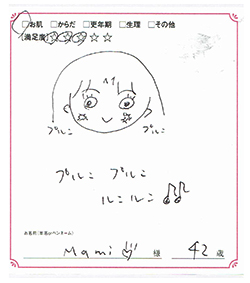 □お肌 □からだ □更年期 □生理 □その他
[満足度] ☆☆☆☆☆
プルン プルン
プルン プルン
ルンルン♫♫
お名前(本名orペンネーム)
Mami 様 42歳